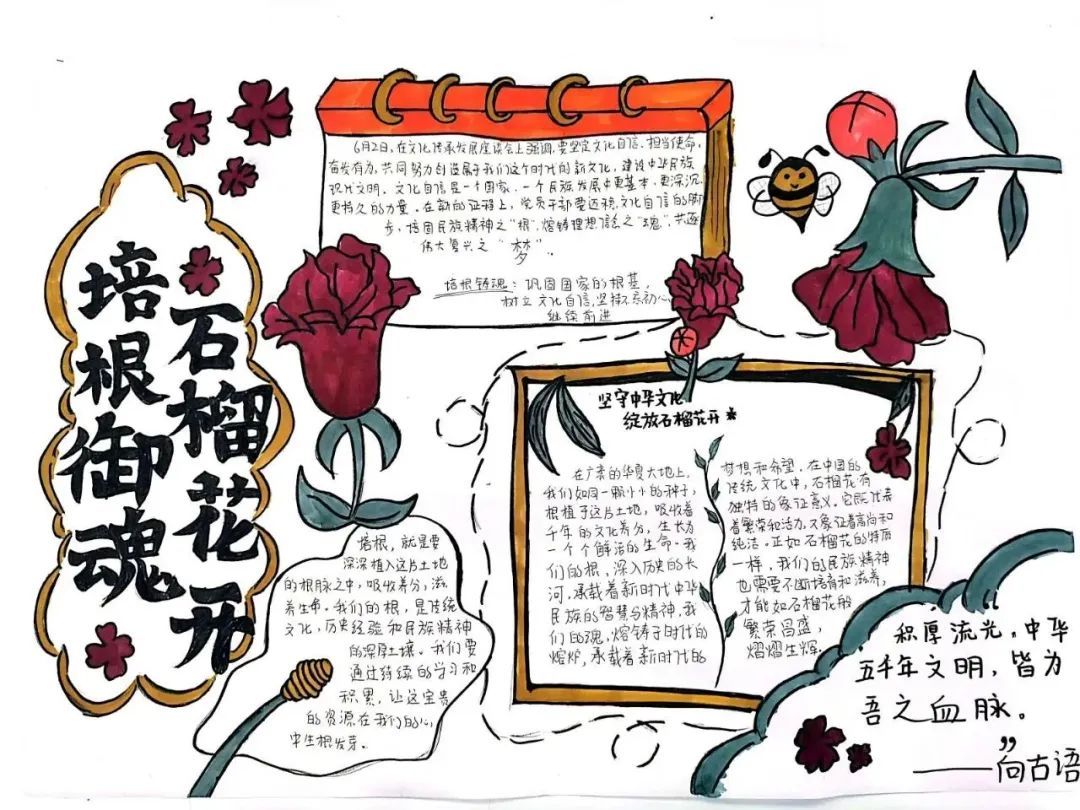 培根御魂
石榴花开
6月2日,在文化传承发展座谈会上强调,要坚定文化自信、担当使命,
奋发有为,共同努力创造属于我们这个时代的新文化,建设中华民族
现代文明。文化自信是一个国家、一个民族发展中更基本、更深沉、
更持久的力量。在新的征程上,党员干部要迈稳文化自信的脚
步,培固民族精神之“根”,熔铸理想信念之“魂”,共逐
伟大复兴之“梦”。
培根铸魂:巩固国家的根基,
树立文化自信,坚持不忘初心,
继续前进
坚守中华文化
绽放石榴花开
在广袤的华夏大地上,
我们如同一颗小小的种子,
根植于这片土地,吸收着
千年的文化养分,生长为
一个个鲜活的生命。我
们的根,深入历史的长
河,承载着新时代中华
民族的智慧与精神,我
们的魂,熔铸于时代的
熔炉,承载着新时代的
梦想和希望。在中国的
传统文化中,石榴花有
独特的象征意义。它既代表
着繁荣和活力,又象征着高尚和
纯洁。正如石榴花的特质
一样,我们的民族精神
也需要不断培育和滋养,
才能如石榴花般
繁荣昌盛,
熠熠生辉。
培根,就是要
深深植入这片土地
的根脉之中,吸收养分,滋
养生命。我们的根,是传统
文化,历史经验和民族精神
的深厚土壤。我们要
通过持续的学习和
积累,让这宝贵
的资源在我们的心
中生根发芽。
“
积厚流光。中华
五千年文明,皆为
吾之血脉。
”
——向古语